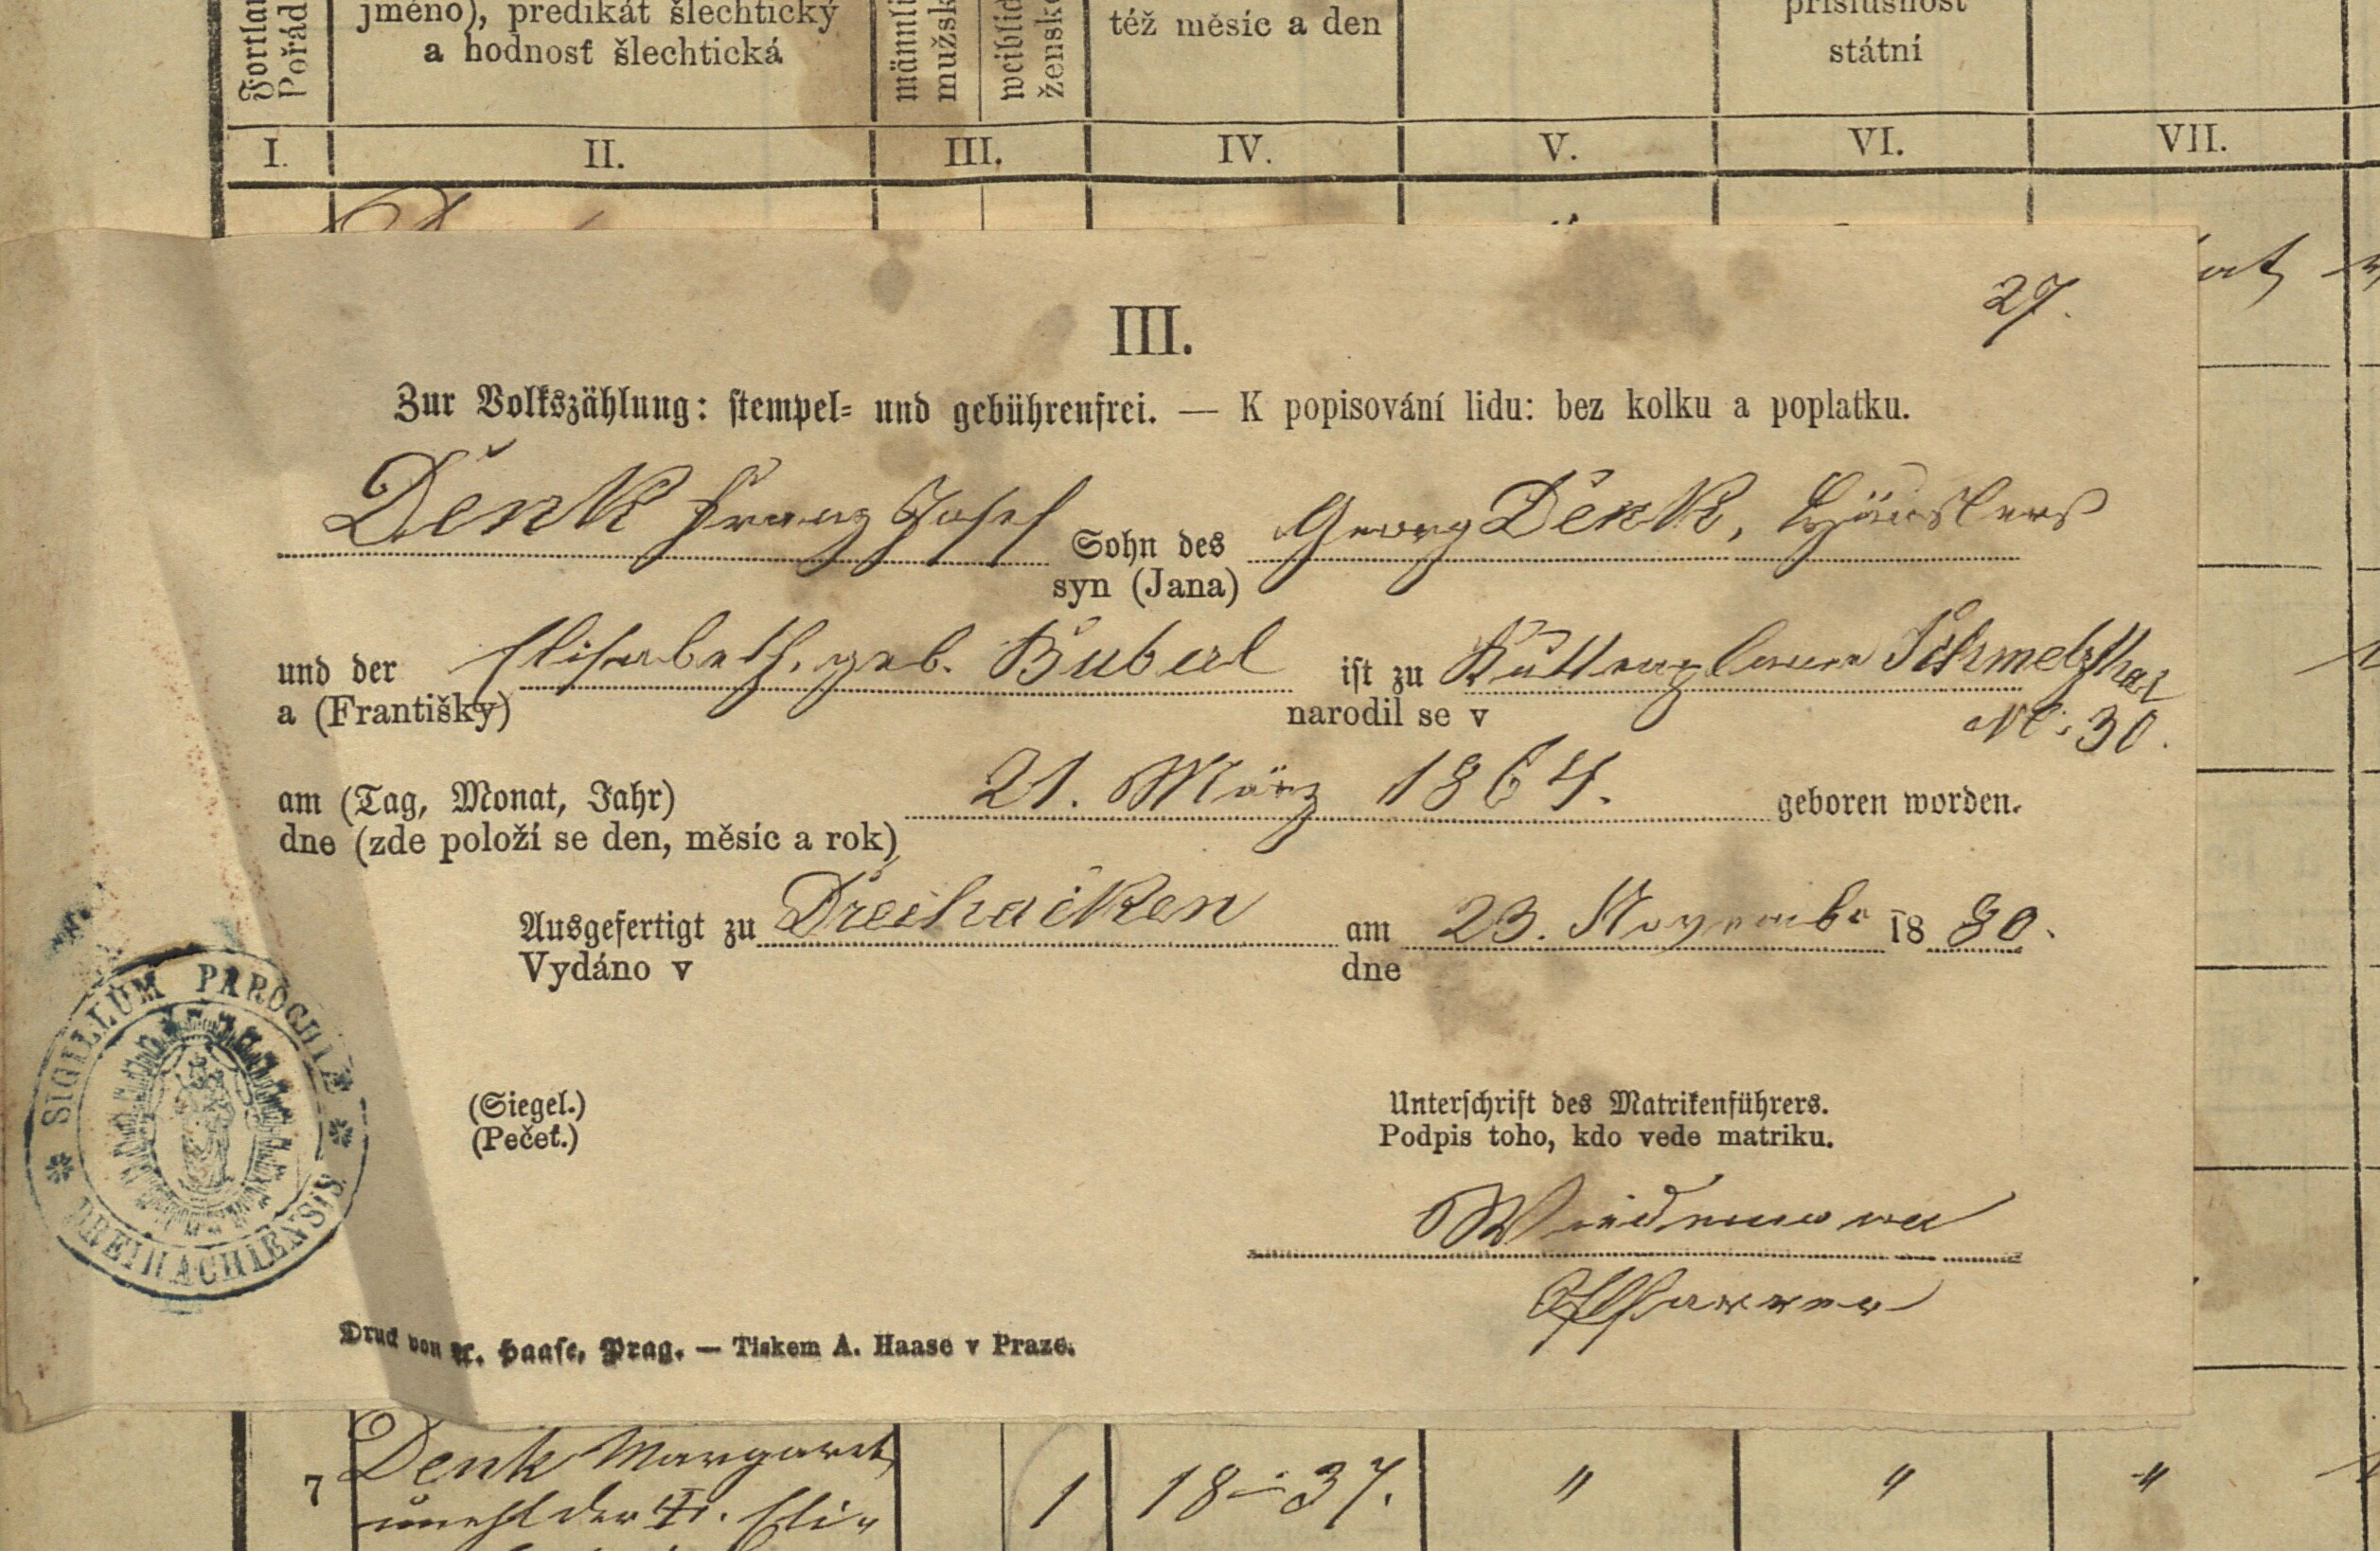 Fortlau
Pořád
jméno), predikát šlechtický
a hodnosť šlechtická
männli
mužsk
weiblic
žensko
též měsíc a den
příslušnost
státní
I.
II.
III.
IV.
V.
VI.
VII.
27.
III.
Zur Volkszählung: stempel- und gebührenfrei. — K popisování lidu: bez kolku a poplatku.
Denk Franz Josef Sohn des Georg Denk, Häuslers
syn (Jana)
und der Elisabeth, geb. Buberl ist zu Kuttenplaner Schmelzthal
a (Františky) narodil se v No: 30.
am (Tag, Monat, Jahr) 21. März 1864. geboren worden.
dne (zde položí se den, měsíc a rok)
Ausgefertigt zu Dreihacken am 23. Novembe 1880.
Vydáno v dne
SIGILLUM PAROCHIÆ
DREIHACHIENSIS
(Siegel.)
(Pečeť.)
Unterschrift des Matrikenführers.
Podpis toho, kdo vede matriku.
Wiedemann
Pfarrer
Druck von A. Haase, Prag. — Tiskem A. Haase v Praze.
7 Denk Margareth 1 18–37. " " "
unehl der Eli-